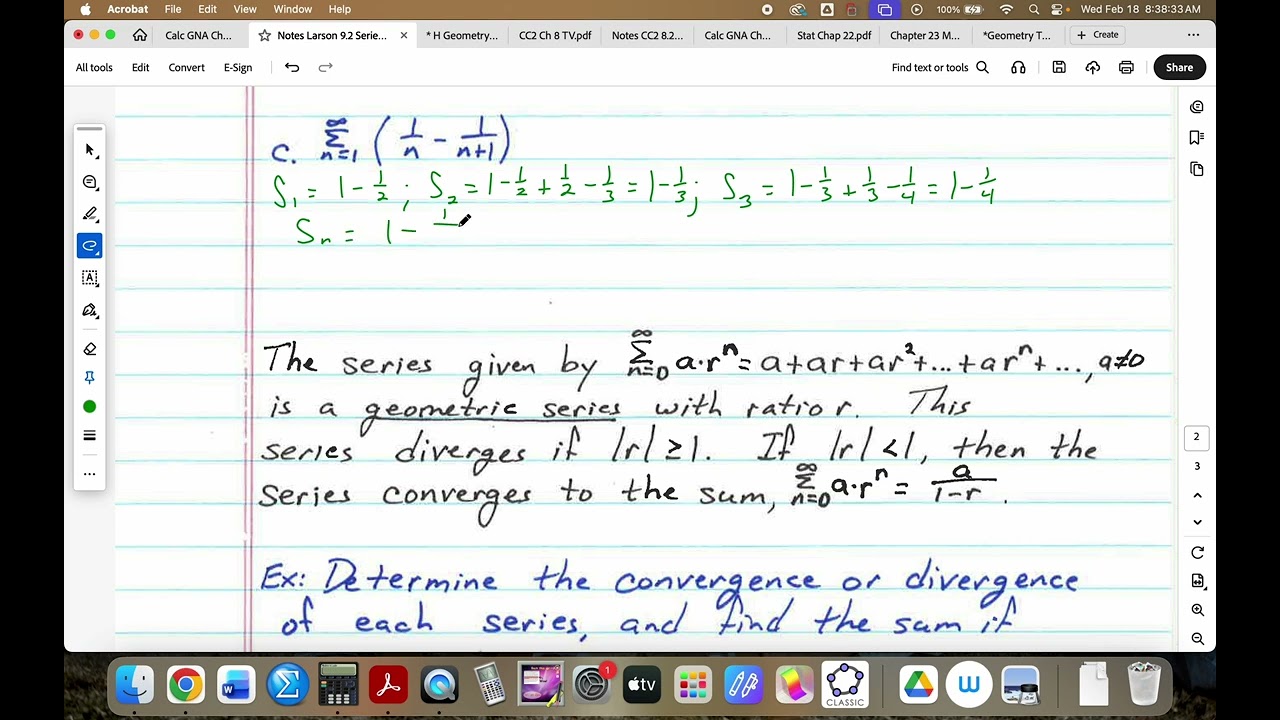 Acrobat File Edit View Window Help 100% Wed Feb 18 8:38:33 AM
Calc GNA Ch... Notes Larson 9.2 Serie... × * H Geometry... CC2 Ch 8 TV.pdf Notes CC2 8.2... Calc GNA Ch... Stat Chap 22.pdf Chapter 23 M... *Geometry T... + Create ...
All tools Edit Convert E-Sign Find text or tools Share
c. ∞ Σ n=1 (1/n - 1/(n+1))
S₁ = 1 - 1/2 ; S₂ = 1 - 1/2 + 1/2 - 1/3 = 1 - 1/3 ; S₃ = 1 - 1/3 + 1/3 - 1/4 = 1 - 1/4
Sₙ = 1 - 1/
The series given by ∞ Σ n=0 a·rⁿ = a + ar + ar² + ... + arⁿ + ..., a≠0
is a geometric series with ratio r. This
series diverges if |r| ≥ 1. If |r| < 1, then the
series converges to the sum, ∞ Σ n=0 a·rⁿ = a/(1-r).
2
3
Ex: Determine the convergence or divergence
of each series, and find the sum if
1
tv
CLASSIC